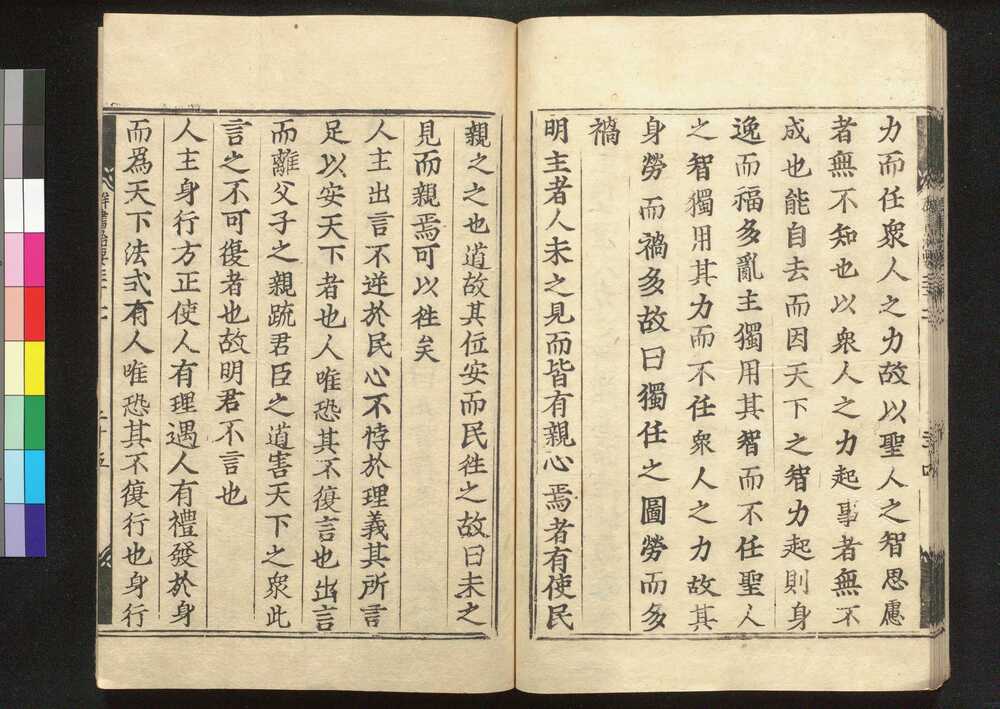 力而任衆人之力故以聖人之智思慮
者無不知也以衆人之力起事者無不
成也能自去而因天下之智力起則身
逸而福多亂主獨用其智而不任聖人
之智獨用其力而不任衆人之力故其
身勞而禍多故曰獨任之圖勞而多
禍
明主者人未之見而皆有親心焉者有使民
親之之也道故其位安而民徃之故曰未之
見而親焉可以徃矣
人主出言不逆於民心不悖於理義其所言
足以安天下者也人唯恐其不復言也出言
而離父子之親疏君臣之道害天下之衆此
言之不可復者也故明君不言也
人主身行方正使人有理遇人有禮發於身
而爲天下法式有人唯恐其不復行也身行